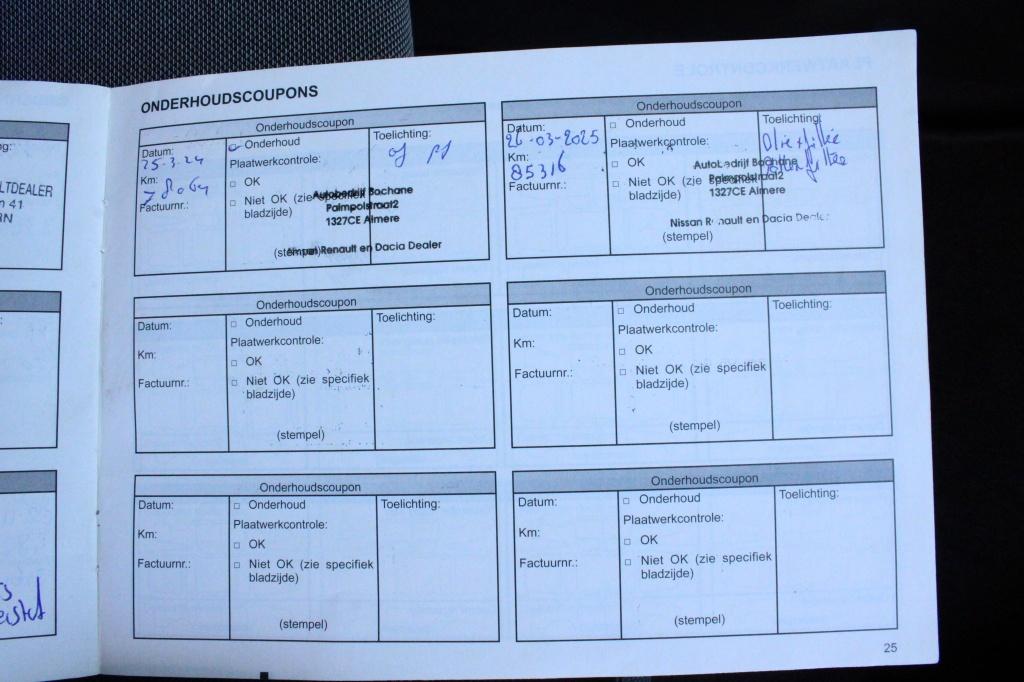 ONDERHOUDSCOUPONS
Onderhoudscoupon
Datum:
25-3-24
Km:
78064
Factuurnr.:
Onderhoud
Plaatwerkcontrole:
OK
Niet OK (zie specifiek
bladzijde)
(stempel)
Toelichting:
Autobedrijf Bochane
Palmpolstraat2
1327CE Almere
Nissan Renault en Dacia Dealer
Onderhoudscoupon
Datum:
26-03-2025
Km:
85316
Factuurnr.:
Onderhoud
Plaatwerkcontrole:
OK
Niet OK (zie specifiek
bladzijde)
(stempel)
Toelichting:
AutoBedrijf Bochane
Palmpolstraat2
1327CE Almere
Nissan Renault en Dacia Dealer
Onderhoudscoupon
Datum:
Km:
Factuurnr.:
Onderhoud
Plaatwerkcontrole:
OK
Niet OK (zie specifiek
bladzijde)
(stempel)
Toelichting:
Onderhoudscoupon
Datum:
Km:
Factuurnr.:
Onderhoud
Plaatwerkcontrole:
OK
Niet OK (zie specifiek
bladzijde)
(stempel)
Toelichting:
Onderhoudscoupon
Datum:
Km:
Factuurnr.:
Onderhoud
Plaatwerkcontrole:
OK
Niet OK (zie specifiek
bladzijde)
(stempel)
Toelichting:
Onderhoudscoupon
Datum:
Km:
Factuurnr.:
Onderhoud
Plaatwerkcontrole:
OK
Niet OK (zie specifiek
bladzijde)
(stempel)
Toelichting:
25